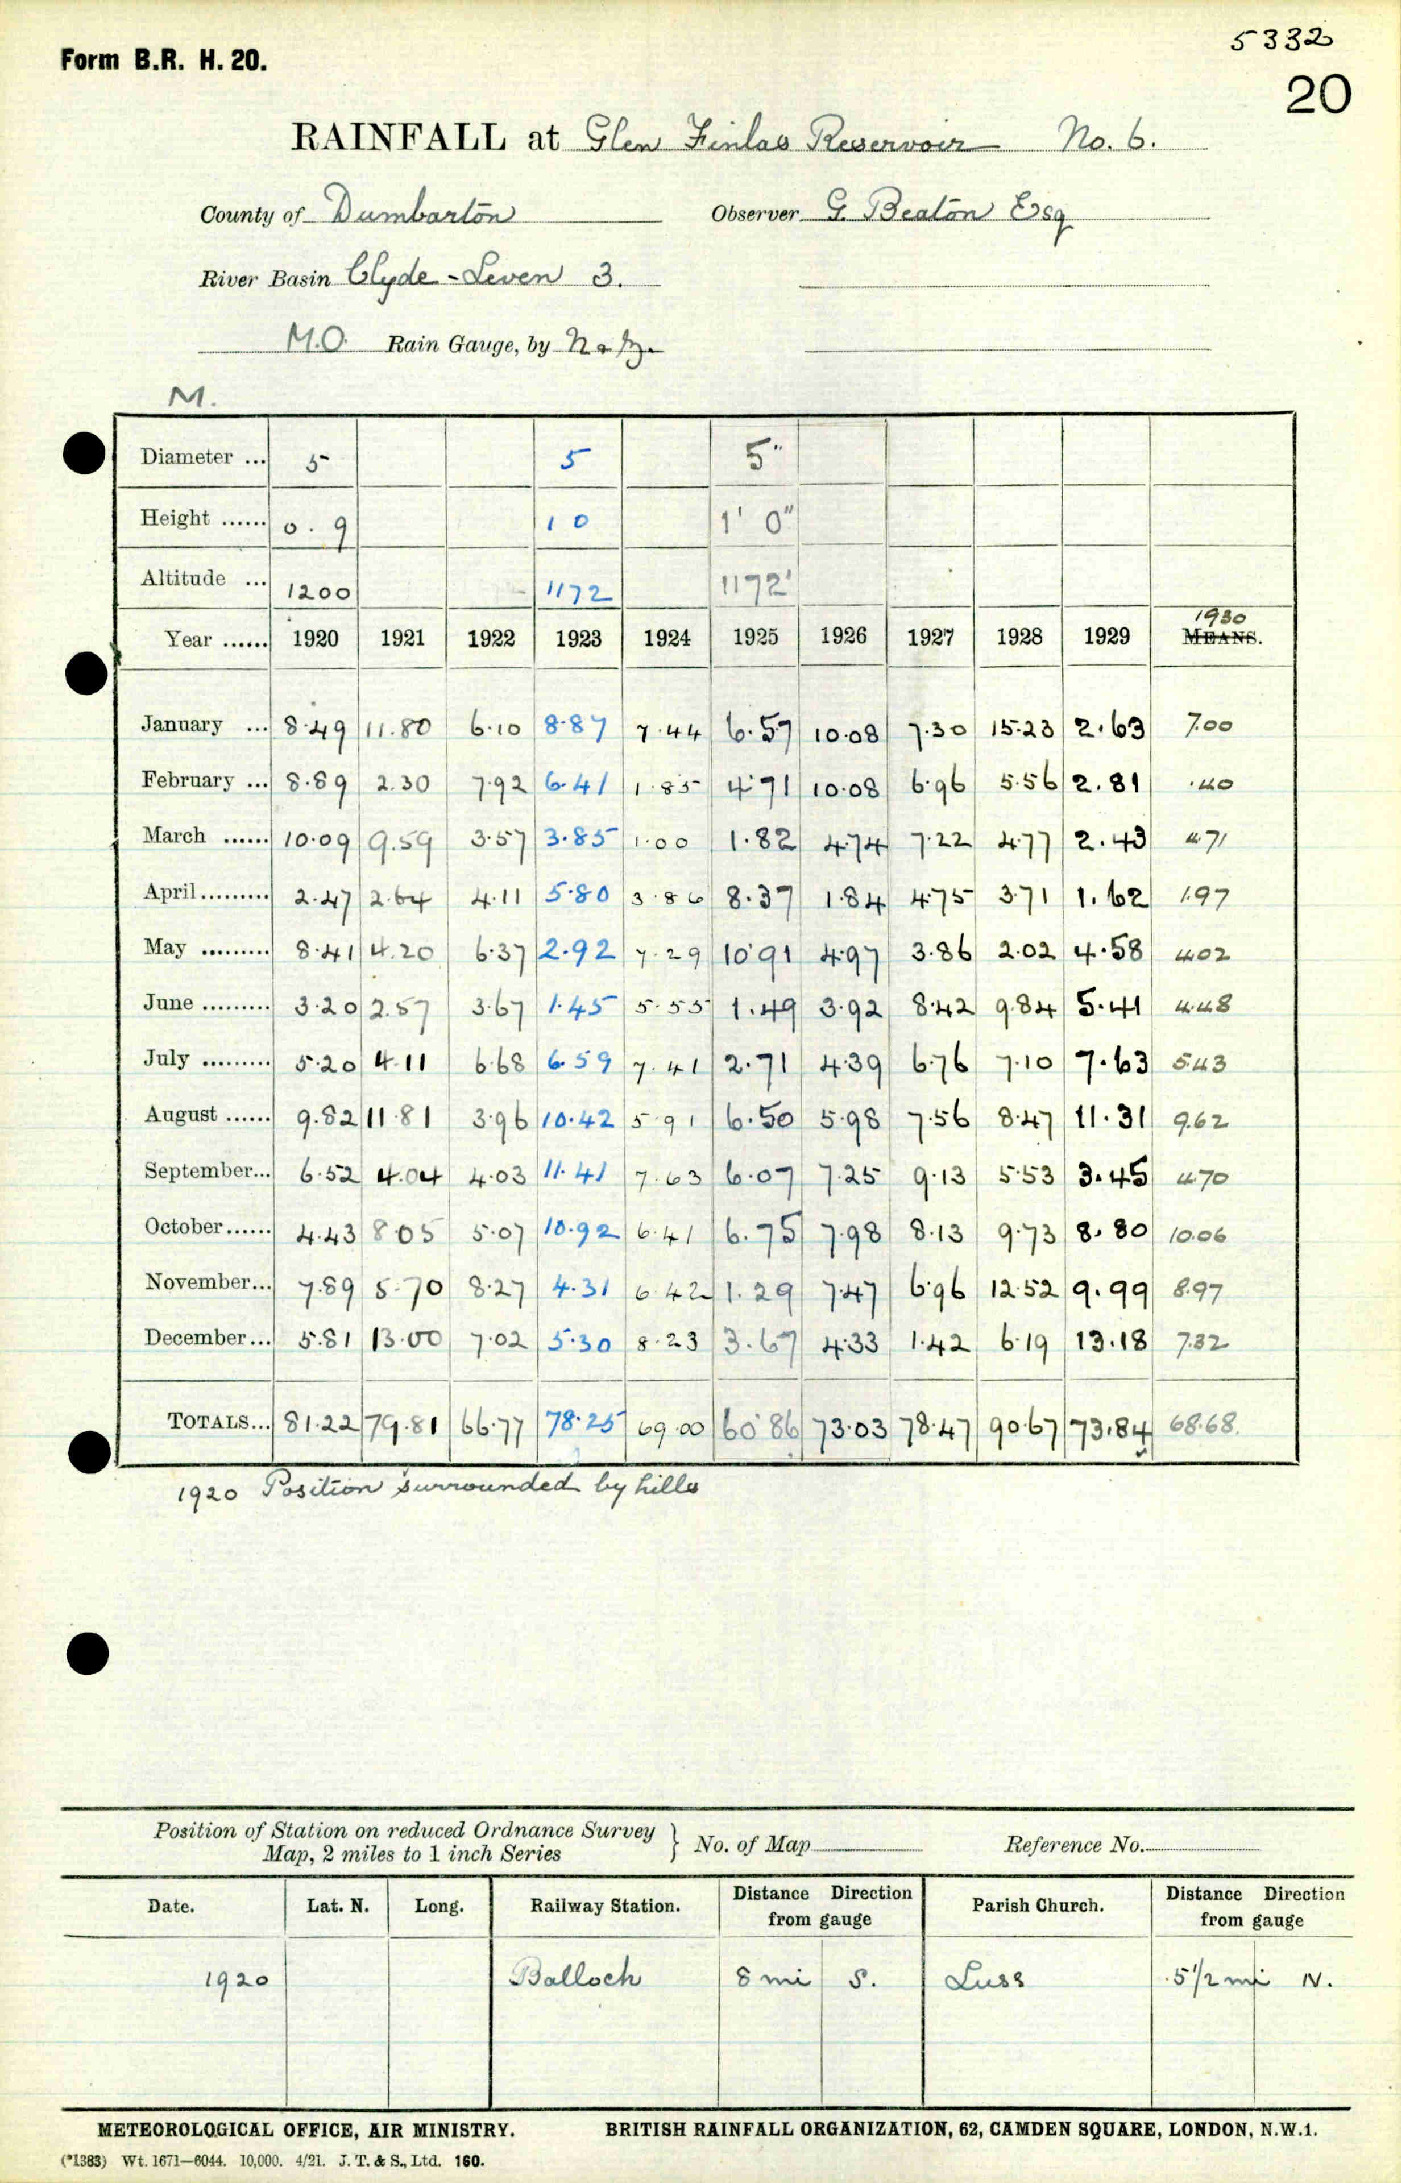 5332
Form B.R. H. 20.
20
RAINFALL at Glen Finlas Reservoir No. 6.
County of Dumbarton Observer G. Beaton Esq
River Basin Clyde - Leven 3.
M.O. Rain Gauge, by N & Z.
M.
Diameter ... 5 5 5"
Height ...... 0. 9 1 0 1' 0"
Altitude ... 1200 1172 1172'
1930
Year ...... 1920 1921 1922 1923 1924 1925 1926 1927 1928 1929 MEANS.
January ... 8.49 11.80 6.10 8.87 7.44 6.57 10.08 7.30 15.23 2.63 7.00
February ... 8.89 2.30 7.92 6.41 1.85 4.71 10.08 6.96 5.56 2.81 .40
March ...... 10.09 9.59 3.57 3.85 1.00 1.82 4.74 7.22 4.77 2.43 4.71
April ......... 2.47 2.64 4.11 5.80 3.86 8.37 1.84 4.75 3.71 1.62 1.97
May ......... 8.41 4.20 6.37 2.92 7.29 10.91 4.97 3.86 2.02 4.58 4.02
June ......... 3.20 2.57 3.67 1.45 5.55 1.49 3.92 8.42 9.84 5.41 4.48
July ......... 5.20 4.11 6.68 6.59 7.41 2.71 4.39 6.76 7.10 7.63 5.43
August ...... 9.82 11.81 3.96 10.42 5.91 6.50 5.98 7.56 8.47 11.31 9.62
September... 6.52 4.04 4.03 11.41 7.63 6.07 7.25 9.13 5.53 3.45 4.70
October...... 4.43 8.05 5.07 10.92 6.41 6.75 7.98 8.13 9.73 8.80 10.06
November... 7.89 5.70 8.27 4.31 6.42 1.29 7.47 6.96 12.52 9.99 8.97
December... 5.81 13.00 7.02 5.30 8.23 3.67 4.33 1.42 6.19 13.18 7.32
TOTALS... 81.22 79.81 66.77 78.25 69.00 60.86 73.03 78.47 90.67 73.84 68.68.
1920 Position surrounded by hills
Position of Station on reduced Ordnance Survey Map, 2 miles to 1 inch Series } No. of Map Reference No.
Date. Lat. N. Long. Railway Station. Distance Direction from gauge Parish Church. Distance Direction from gauge
1920 Balloch 8 mi S. Luss 5 1/2 mi N.
METEOROLOGICAL OFFICE, AIR MINISTRY. BRITISH RAINFALL ORGANIZATION, 62, CAMDEN SQUARE, LONDON, N.W.1.
(*1383) Wt. 1671—6044. 10,000. 4/21. J. T. & S., Ltd. 160.